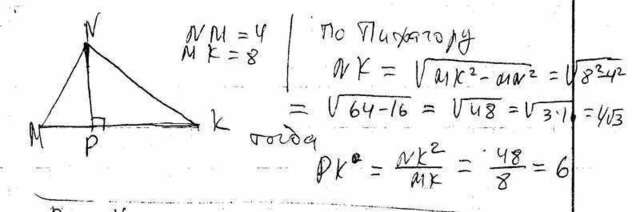 N
M P K
NM = 4
MK = 8
по Пифагору
NK = √MK²-MN² = √8²4²
= √64-16 = √48 = √3·1 = 4√3
тогда
PK = NK²/MK = 48/8 = 6